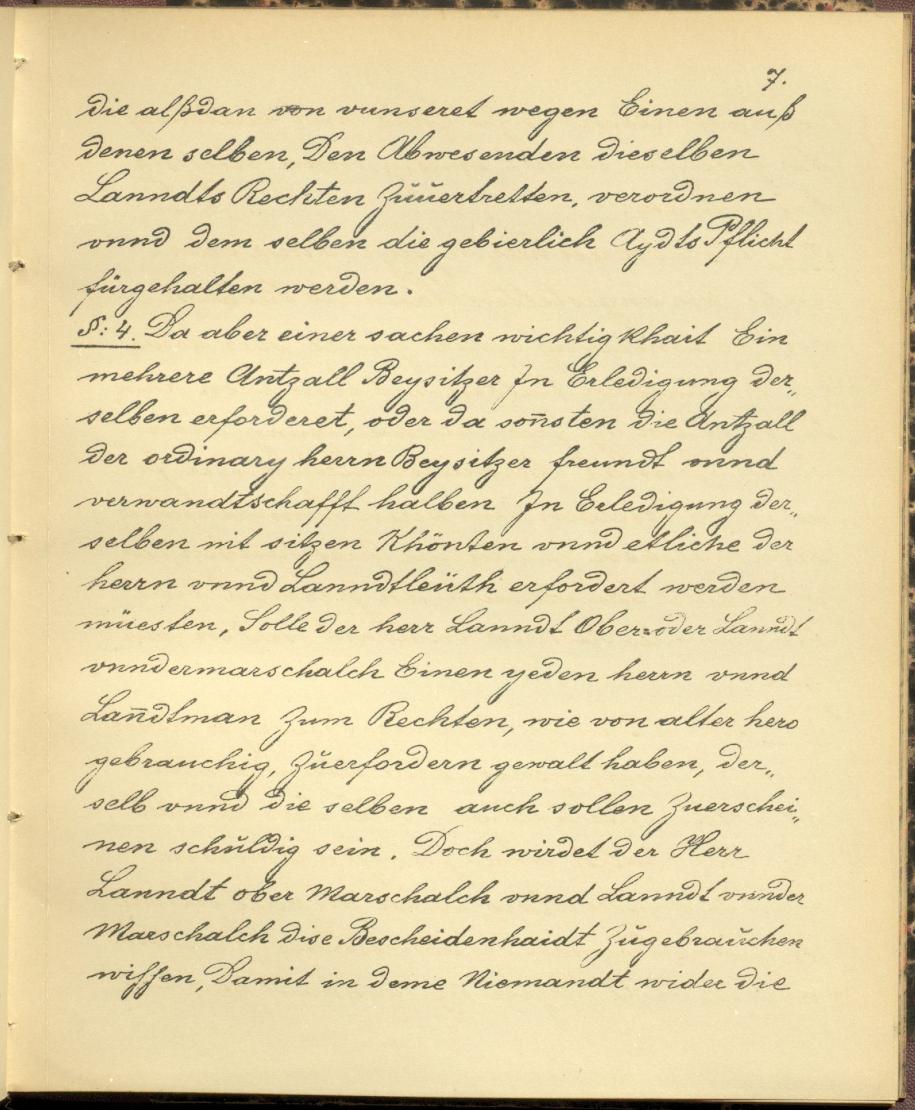 7.
die alßdan von vunseret wegen Einen auß
denen selben, Den Abwesenden dieselben
Lanndts Rechten Zŭŭertretten, verordnen
vnnd dem selben die gebierlich AydtsPflicht
fürgehalten werden.
§: 4. Da aber einer sachen wichtigkhait Ein
mehrere Antzall Beysitzer In Erledigung der„
selben erforderet, oder da son̄sten die Antzall
der ordinary herrn Beysitzer freundt vnnd
verwandtschafft halben In Erledigung der„
selben nit sitzen Khönten vnnd etliche der
herrn vnnd Lanndtleüth erfordert werden
müesten, Solle der herr Lanndt Ober=oder Lanndt
vnndermarschalch Einen yeden herrn vnnd
Lan̄dtman zum Rechten, wie von alter hero
gebrauchig, Zŭerfordern gewalt haben, der„
selb vnnd die selben auch sollen Zuerschei„
nen schŭldig sein. Doch wirdet der Herr
Lanndt ober Marschalch vnnd Lanndt vnnder
Marschalch dise Bescheidenhaidt Zŭgebraŭchen
wissen, Damit in deme Niemandt wider die